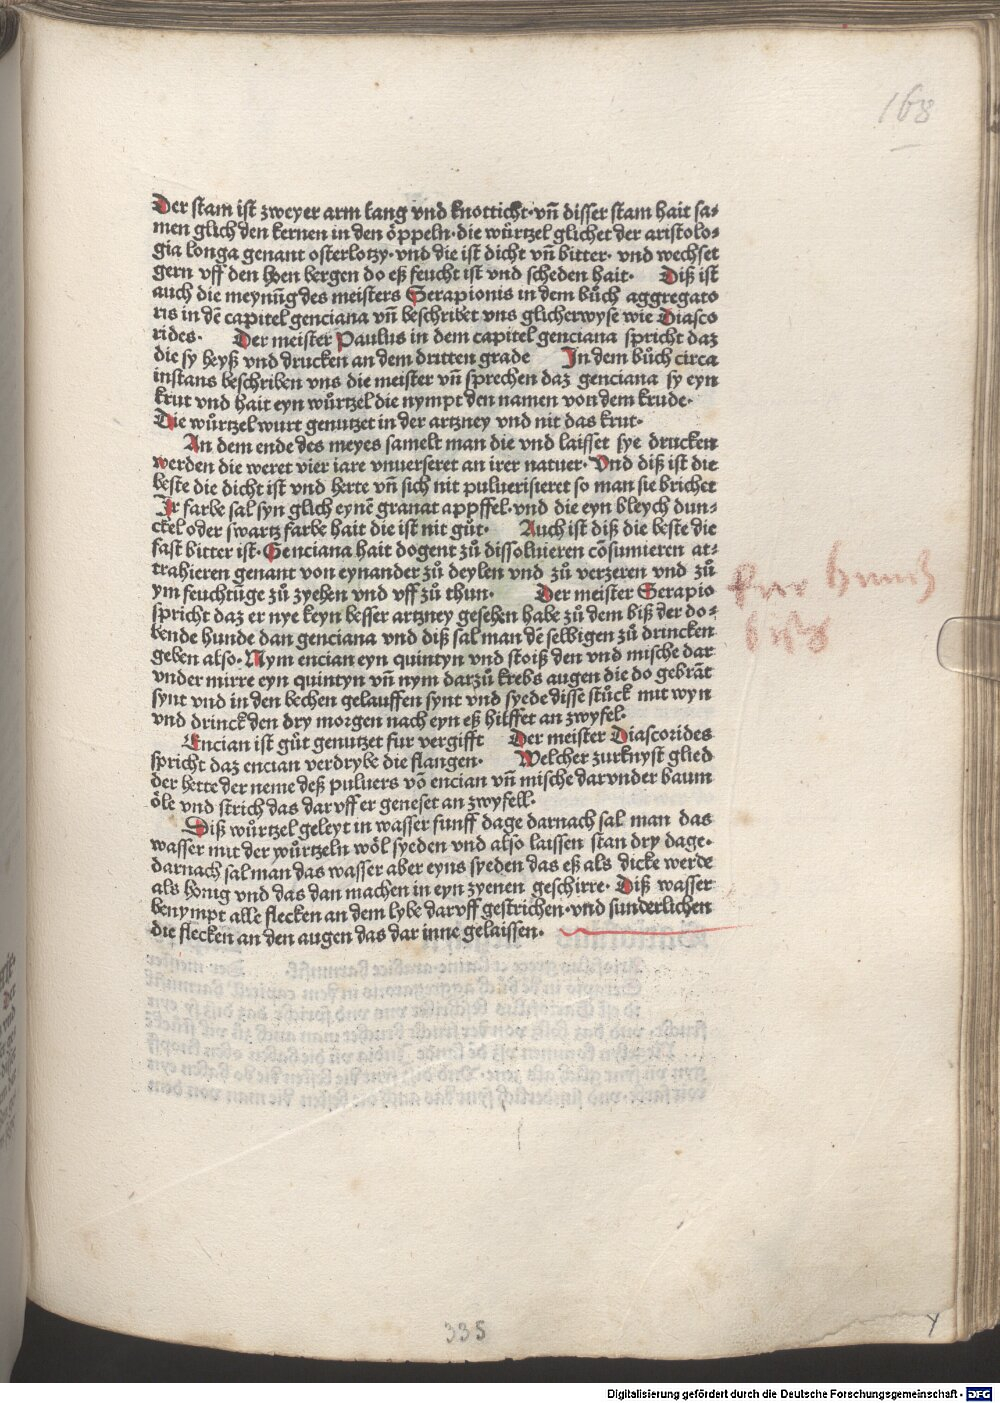 168
Der stam ist zweyer arm lang vnd knotticht· vñ disser stam hait sa⸗
men glich den kernen in den öppeln· die wůrtzel glichet der aristolo⸗
gia longa genant osterlotzy· vnd die ist dicht vñ bitter· vnd wechset
gern vff den hoen bergen do eß feucht ist vnd scheden hait· Diß ist
auch die meynũg des meisters Serapionis in dem bůch aggregato
ris in dē capitel genciana vñ beschribet vns glicherwyse wie Diasco
rides· Der meister Paulus in dem capitel genciana spricht daz
die sy heyß vnd drucken an dem dritten grade In dem bůch circa
instans beschriben vns die meister vñ sprechen daz genciana sy eyn
krut vnd hait eyn wůrtzel die nympt den namen von dem krude·
Die wůrtzel wurt genutzet in der artzney vnd nit das krut·
An dem ende des meyes samelt man die vnd laisset sye drucken
werden die weret vier iare vnuerseret an irer natuer· Vnd diß ist die
beste die dicht ist vnd herte vñ sich nit puluerisieret so man sie brichet
Ir farbe sal syn glich eynē granat appffel· vnd die eyn bleych dun⸗
ckel oder swartz farbe hait die ist nit gůt· Auch ist diß die beste die
fast bitter ist· Genciana hait dogent zů dissoluieren cõsumieren at⸗
trahieren genant von eynander zů deylen vnd zů verzeren vnd zů
ym feuchtũge zů zyehen vnd vff zů thun· Der meister Serapio
spricht daz er nye keyn besser artzney gesehen habe zů dem biß der do⸗
bende hunde dan genciana vnd diß sal man dē selbigen zů drincken
geben also· Nym encian eyn quintyn vnd stoiß den vnd mische dar
vnder mirre eyn quintyn vñ nym darzů krebs augen die do gebrāt
synt vnd in den bechen gelauffen synt vnd syede disse stůck mit wyn
vnd drinck den dry morgen nach eyn eß hilffet an zwyfel·
Encian ist gůt genutzet fur vergifft Der meister Diascorides
spricht daz encian verdrybe die slangen· Welcher zurknyst glied
der hette der neme deß puluers võ encian vñ mische darvnder baum
öle vnd strich das darvff er geneset an zwyfell·
Diß wůrtzel geleyt in wasser funff dage darnach sal man das
wasser mit der wůrtzeln wöl syeden vnd also laissen stan dry dage·
darnach sal man das wasser aber eyns syeden das eß als dicke werde
als honig vnd das dan machen in eyn zyenen geschirre· Diß wasser
benympt alle flecken an dem lybe darvff gestrichen· vnd sunderlichen
die flecken an den augen das dar inne gelaissen·
335
Digitalisierung gefördert durch die Deutsche Forschungsgemeinschaft - DFG